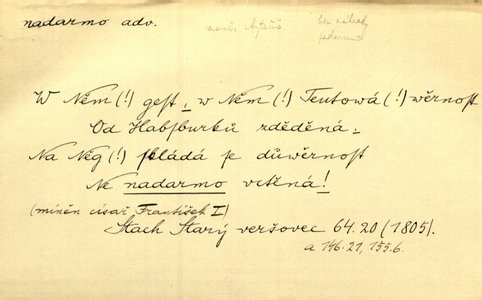 nadarmo adv.
bez náhrady
W Něm (!) gest, w Něm (!) Teutowá (!) wěrnost
Od Habsburků zděděná.
Na Něg (!) skládá se důwěrnost
Ne nadarmo vctěná!
(míněn císař František I)
Stach Starý veršovec 64.20 (1805).
a 146.21, 155.6.